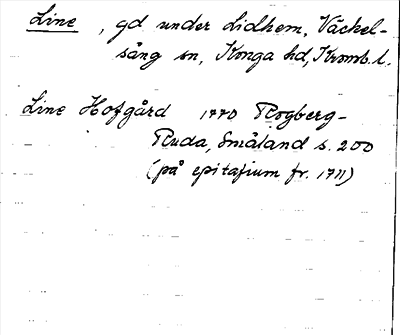 Line , gd under Lidhem, Väckel-
sång sn, Konga hd, Kronob. l.
Line Hofgård 1770 Rogberg-
Ruda, Småland s. 200
(på epitafium fr. 1711)